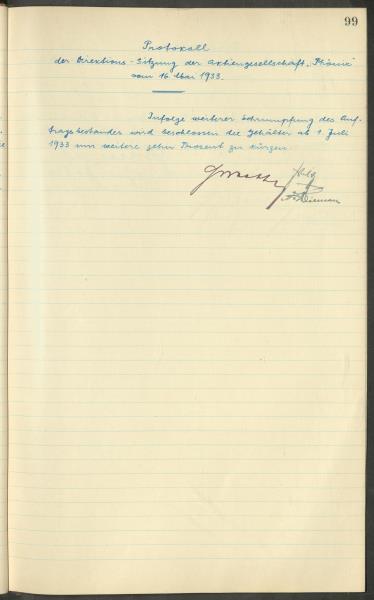 99
Protokoll
der Direktions-Sitzung der Aktiengesellschaft „Phönix"
vom 16. Mai 1933.
Infolge weiterer Schrumpfung des Auf-
tragsbestandes wird beschlossen die Gehälter ab 1. Juli
1933 um weitere zehn Prozent zu kürzen.